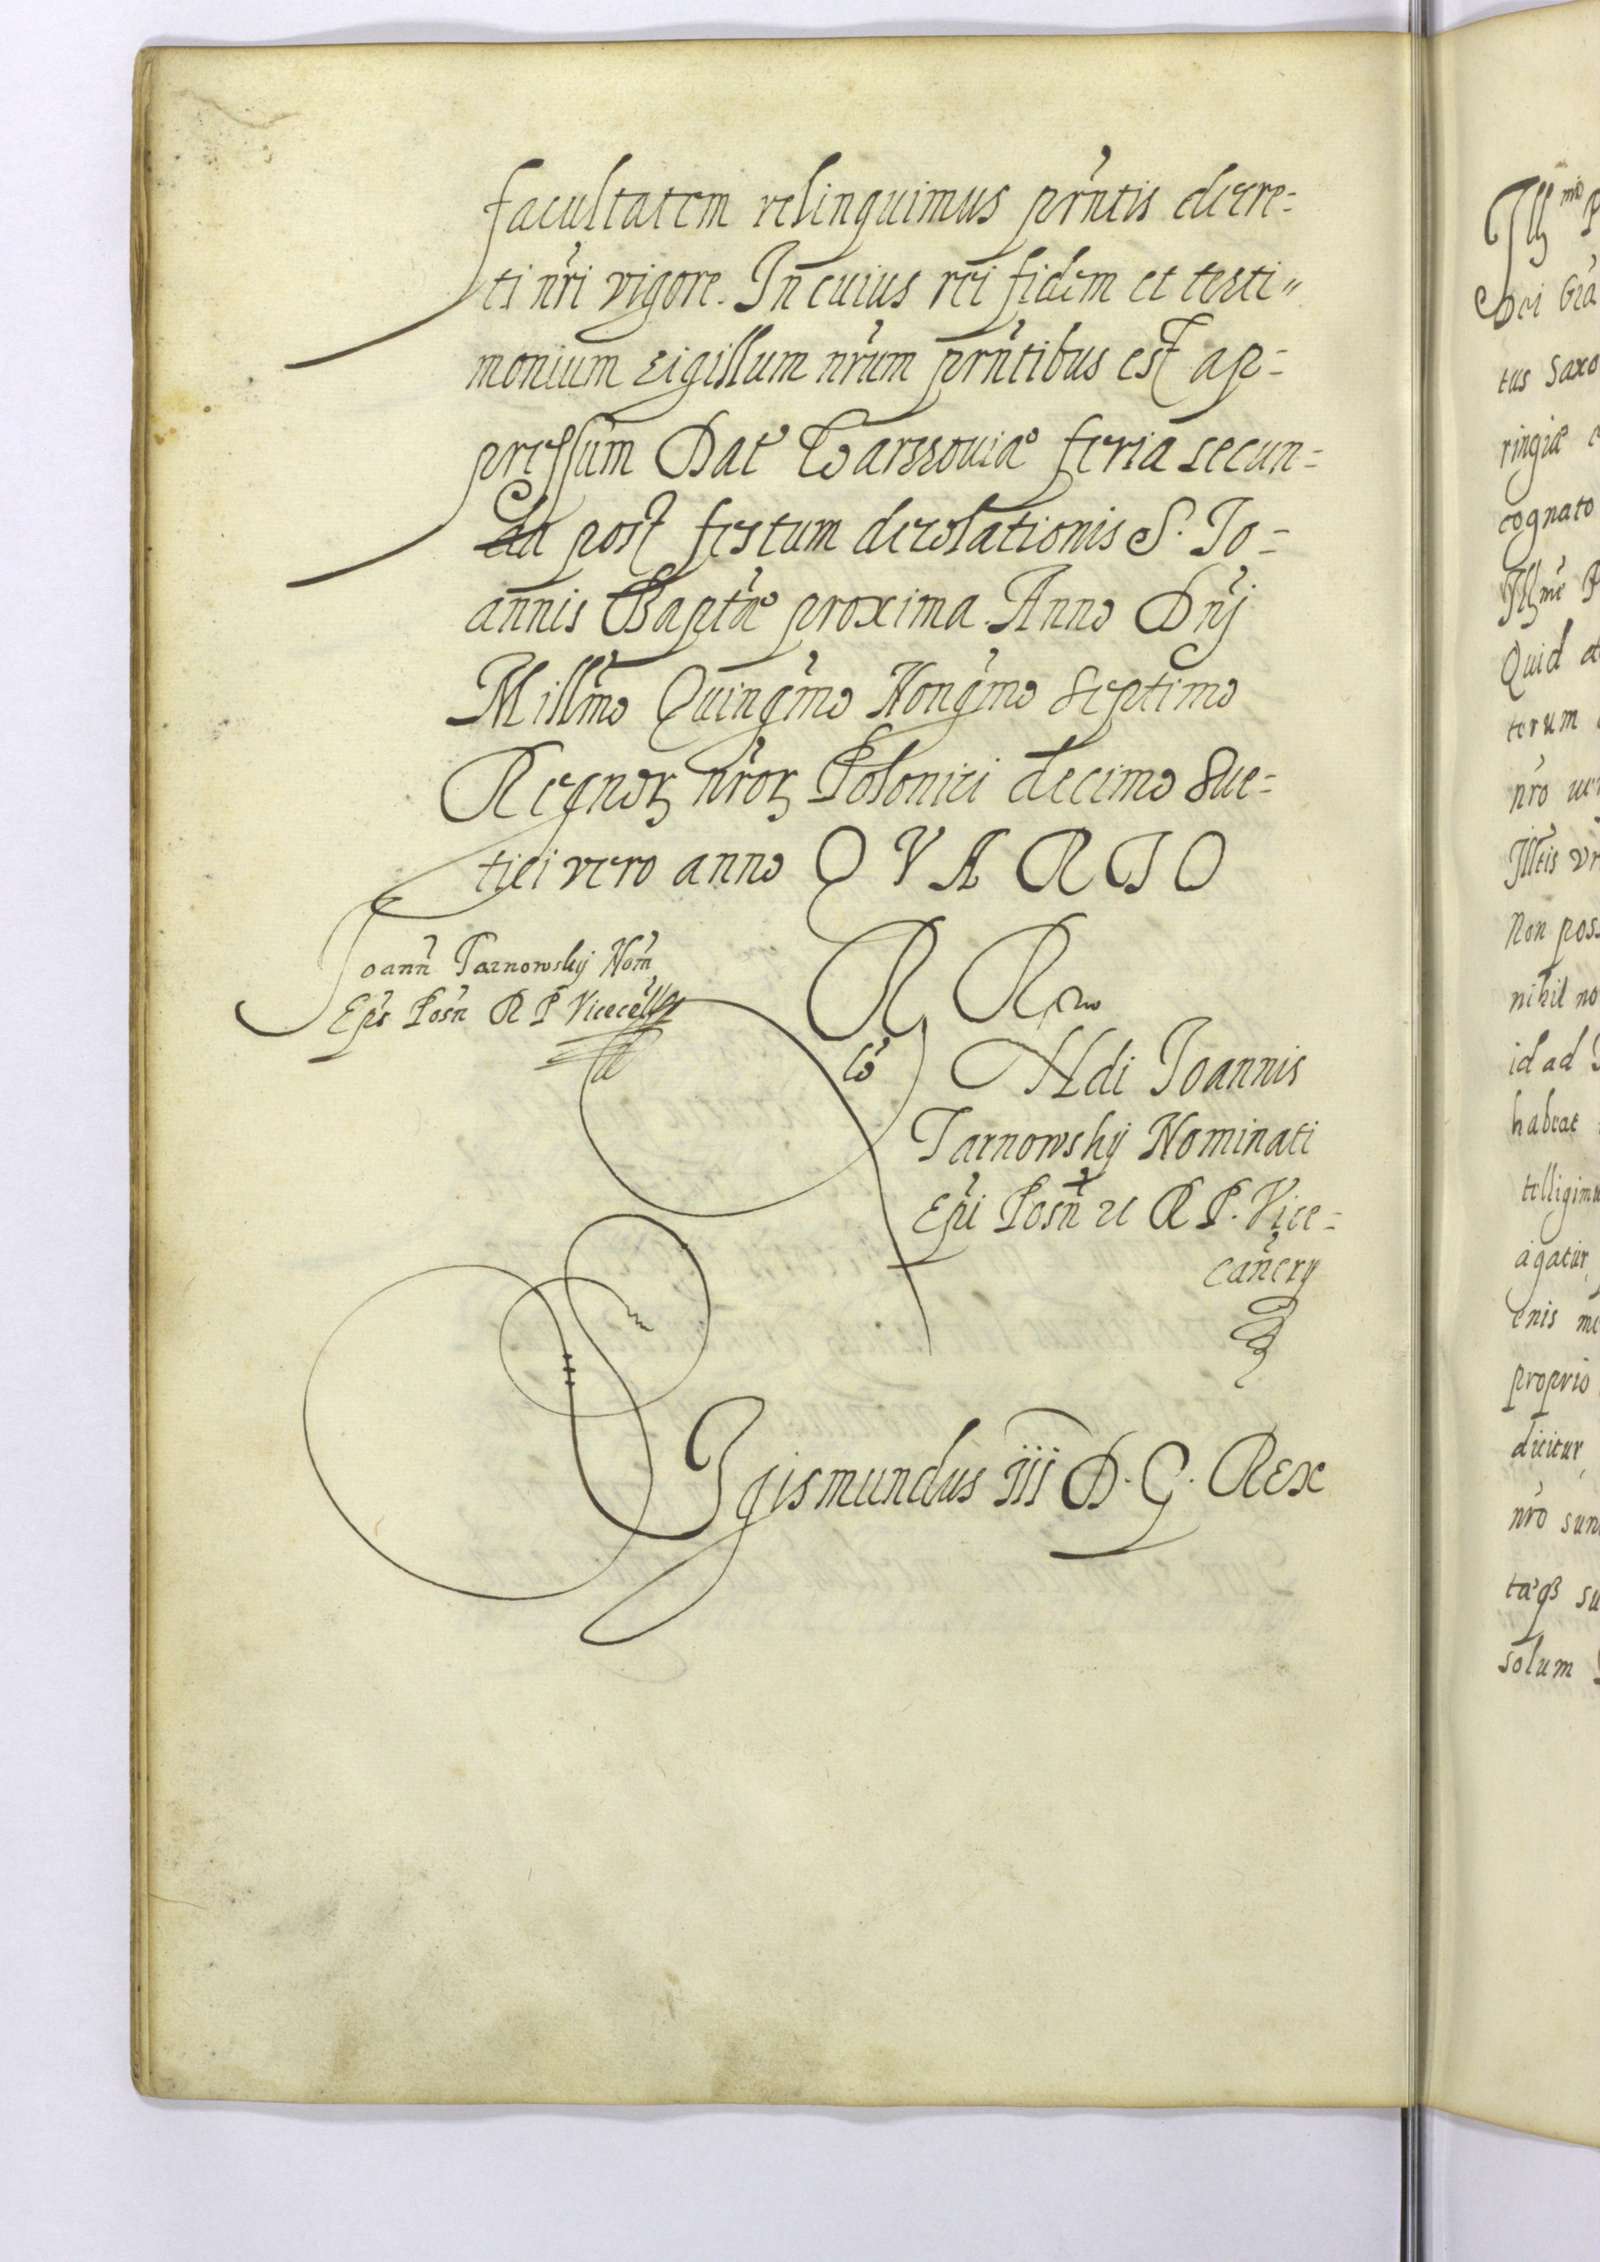 facultatem relinquimus prñtis decre=
ti nr̃i vigore. In cuius rei fidem et testi"
monium sigillum nr̃um prñtibus est ap=
pressum Dat̃ Warssoviæ feria secun=
da post festum decolationis S. Jo=
annis Bapt̃æ proxima. Anno Dñj
Mill̃mo Quing̃mo Nonag̃mo Septimo
Regnoꝝ nr̃oꝝ Polonici decimo Sue=
tici vero anno QVARTO
Joann̄ Tarnowskij Nom̃
Ep̃s Posñ R P Vicecã
R R
Ndi Joannis
Tarnowskij Nominati
Ep̃i Posñ et R P. Vice=
cañcrij
Sigismundus iii D. G. Rex
Ill mo P
Dei Gr̃a
tus Saxo
ringiæ
cognato
Ill me P
Quid
terum
nr̃o
Non poss
nihil no
id ad
habeat
telligimu
agatur
enis
proprio
dicitur
nr̃o sun
su
solum